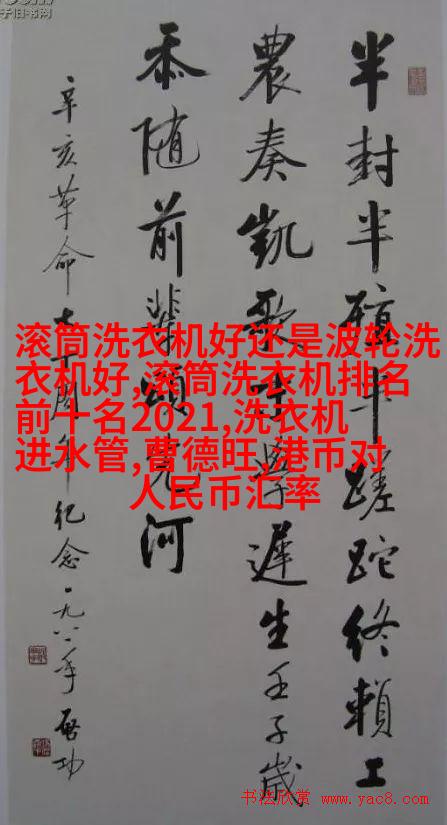 子旧书网
半封半殖半蹉跎終賴工
農奏凱歌學遲生壬子歲
忝随前輩頌先河
辛亥革命七十周年纪念一九八一年 啓功
滚筒洗衣机好还是波轮洗
衣机好,滚筒洗衣机排名
前十名2021,洗衣机
进水管,曹德旺,港币对
人民币汇率
书法欣赏 www.yac8.com